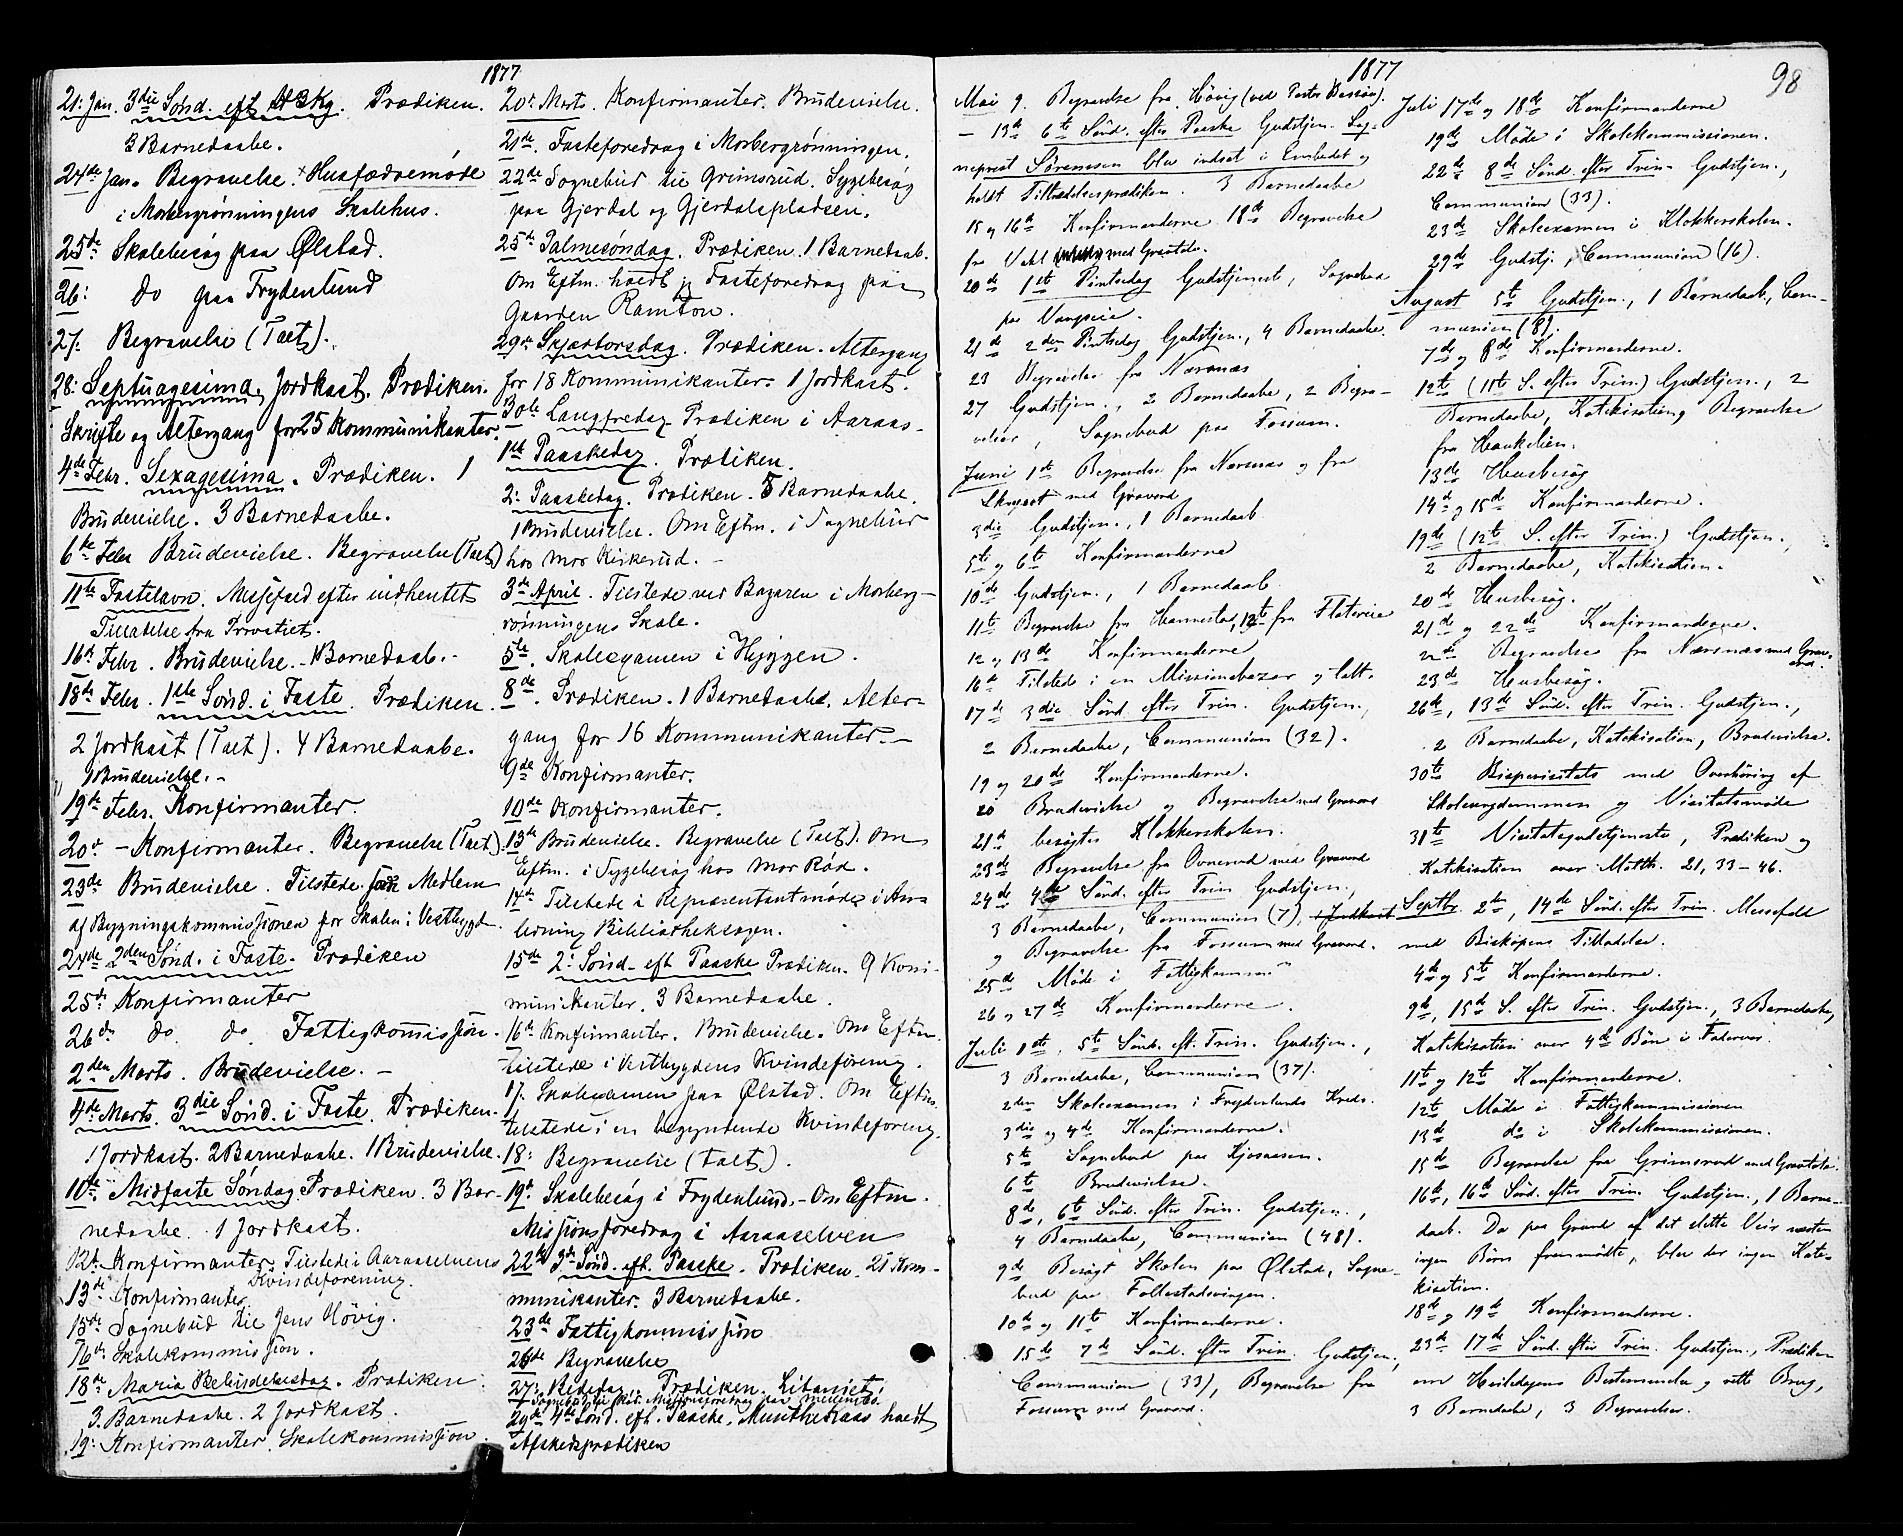 1877
21: Jan. 3die Sönd. eft H3Kg. Prædiken.
3 Barnedaabe.
24de Jan. Begravelse. + Husfædremøde
i Morbergrønningens Skolehus.
25de Skolebesøg paa Ølstad.
26: do paa Frydenlund
27: Begravelse (Talt).
28: Septuagesima, Jordkast. Prædiken.
Skrifte og Altergang for 25 Kommunikanter.
4de Febr. Sexagesima. Prædiken. 1
Brudevielse. 3 Barnedaabe.
6te Febr Brudevielse. Begravelse (Talt)
11te Fastelavn. Messefald efter indhentet
Tilladelse fra Provstiet.
16d Febr. Brudevielse. – Barnedaab. –
18de Febr. 1ste Sönd. i Faste. Prædiken.
2 Jordkast (Talt). 4 Barnedaabe.
1 Brudevielse. –
19de Febr. Konfirmanter
20de – Konfirmanter. Begravelse (Talt).
23de Brudevielse. Tilstede som Medlem
af Bygningskommissjonen for Skolen i Vestbygd
24de 2den Sönd. i Faste. Prædiken
25de Konfirmanter
26de do do. Fattigkommissjon.
2den Marts. Brudevielse. –
4de Marts. 3die Sönd. i Faste. Prædiken.
1 Jordkast. 2 Barnedaabe. 1 Brudevielse.
10de Midfaste Søndag Prædiken. 3 Bar-
nedaabe. 1 Jordkast.
12te Konfirmanter. Tilstede i Aaraaselvens
Kvindeforening.
13de Konfirmanter
15de Sognebud til Jens Høvig.
16de Skolekommissjon.
18de Maria Bebudelsesdag. Prædiken.
3. Barnedaabe. 2 Jordkast.
19: Konfirmanter. Skolekommissjon.
20de Marts. Konfirmanter. Brudevielse.
21de. Fasteforedrag i Morbergrønningen.
22de Sognebud til Grimsrud. Sygebesøg
paa Gjerdal og Gjerdalspladsen.
25de Palmesøndag. Prædiken. 1 Barnedaab.
Om Eftm. holdt jeg Fasteforedrag paa
Gaarden Ramton.
29de Skjærtorsdag. Prædiken. Altergang
for 18 Kommunikanter. 1 Jordkast.
30te Langfredag Prædiken i Aaraas-
1ste Paaskedag. Prædiken.
2: Paaskedag. Prædiken. 5 Barnedaabe.
1 Brudevielse. Om Eftm. i Sognebud
hos Mor Kirkerud. –
3de April. Tilstede ved Bazaren i Morberg-
rønningens Skole.
5te. Skoleexamen i Hyggen.
8de. Prædiken. 1 Barnedaabe. Alter-
gang for 16 Kommunikanter. –
9de Konfirmanter.
10de Konfirmanter.
13de Brudevielse. Begravelse (Talt). Om
Eftm. i Sygebesøg hos Mor Rød.
14de Tilstede i Repræsentantmøde i An-
ledning Bibliotheksagen.
15de 2: Sönd. eft Paaske Prædiken. 9 Kom-
munikanter. 3 Barnedaabe.
16de Konfirmanter. Brudevielse. Om Eftm.
tilstede i Vestbygdens Kvindeforening.
17: Skoleexamen paa Ølstad. Om Eftm.
tilstede i en begyndende Kvindeforening.
18: Begravelse (Talt).
19de Skolebesøg i Frydenlund. – Om Eftm.
Missjonsforedrag i Aaraaselven
22de 3de Sönd. eft. Paaske. Prædiken. 25 Kom-
munikanter. 3 Barnedaabe.
23de Fattigkommissjon
26de Begravelse
27: Bededag. Prædiken. Litaniet.
29de 4de Sönd. eft. Paaske. Munthe Kaas holdt
Afskedsprædiken
1877
98
Mai 9. Begravelse fra Høvig (ved Pastor Bassøe).
– 13de 6te Sönd. efter Paaske Gudstjen. Sog-
neprest Sörensen blev indsat i Embedet og
holdt Tiltrædelsesprædiken. 3 Barnedaabe
15 og 16de Konfirmanderne 18de Begravelse
fra med Gravtale.
20de 1ste Pintsedag Gudstjeneste, Sognebud
paa Vangseie.
21de 2den Pintsedag Gudstjen., 4 Barnedaabe.
23 Begravelse fra Næsnæs
27 Gudstjen., 2 Barnedaabe, 2 Begra-
velser, Sognebud paa Fossum.
Juni 1ste Begravelse fra Næsnæs og fra
med Gravord
3die Gudstjen., 1 Barnedaab
5te og 6te Konfirmanderne
10de Gudstjen., 1 Barnedaab
11te Begravelse fra Hannestad, 12te fra
12 og 13de Konfirmanderne
16de Tilstede i en Missionsbazar og talt.
17de 3die Sönd efter Trin. Gudstjen.,
2 Barnedaabe, Communion (32).
19 og 20de Konfirmanderne.
20 Brudevielse og Begravelse med Gravord
21de besøgte Klokkerskolen.
23de Begravelse fra Ovnerud med Gravord
24de 4de Sönd. efter Trin Gudstjen.,
3 Barnedaabe, Communion (7), 1 Jordkast
og Begravelse fra Fossum med Gravord.
25de Møde i Fattigkomm.
26 og 27de Konfirmanderne.
Juli 1ste, 5te Sönd. eft. Trin. Gudstjen.,
3 Barnedaabe, Communion (37).
2den Skoleexamen i Frydenlunds Kreds.
3die og 4de Konfirmanderne.
5te Sognebud paa Kjosaasen.
6te Brudevielse.
8de, 6te Sönd. efter Trin. Gudstjen.,
4 Barnedaabe, Communion (48).
9de Besøgt Skolen paa Ølstad, Sogne-
bud paa Follestadengen.
10de og 11te Konfirmanderne.
15de 7de Sönd. efter Trin. Gudstjen.,
Communion (33), Begravelse fra
Fossum med Gravord.
Juli 17de og 18de Konfirmanderne
19de Møde i Skolekommissionen.
22de 8de Sönd. efter Trin. Gudstjen.,
Communion (33).
23de Skoleexamen i Klokkerskolen.
29de Gudstj., Communion (16).
August 5te Gudstjen., 1 Barnedaab, Com-
munion (8).
7de og 8de Konfirmanderne.
12te (11te S. efter Trin.) Gudstjen., 2
Barnedaabe, Katekisation, Begravelse
fra Haukelien.
13de Husbesøg
14de og 15de Konfirmanderne.
19de (12te S. efter Trin.) Gudstjen.,
2 Barnedaabe, Katekisation.
20de Husbesøg.
21de og 22de Konfirmanderne.
22de Begravelse fra Næsnæs med Grav-
ord.
23de Husbesøg.
26de, 13de Sönd. efter Trin. Gudstjen.,
2 Barnedaabe, Katekisation, Brudevielse.
30te Bispevisitats med Overhöring af
Skoleungdommen og Visitatsmøde
31te Visitatsgudstjeneste, Prædiken og
Katekisation over Matth. 21, 33–46.
Septbr. 2den, 14de Sönd. efter Trin. Messefald
med Biskopens Tilladelse.
4de og 5te Konfirmanderne.
9de, 15de S. efter Trin. Gudstjen., 3 Barnedaabe,
Katekisation over 4de Bön i Fadervor.
11te og 12te Konfirmanderne.
12te Møde i Fattigkommissionen
13de do i Skolekommissionen.
15de Begravelse fra Grimsrud med Gravtale.
16te, 16te Sönd. efter Trin. Gudstjen., 1 Barne-
daab. Da paa Grund af det slette Veir næsten
ingen Børn fremmödte, blev der ingen Kate-
kisation.
18de og 19de Konfirmanderne.
23de 17de Sönd. efter Trin. Gudstjen., Prædiken
om Hviledagens Bestemmelse og rette Brug,
3 Barnedaabe, 3 Begravelser.